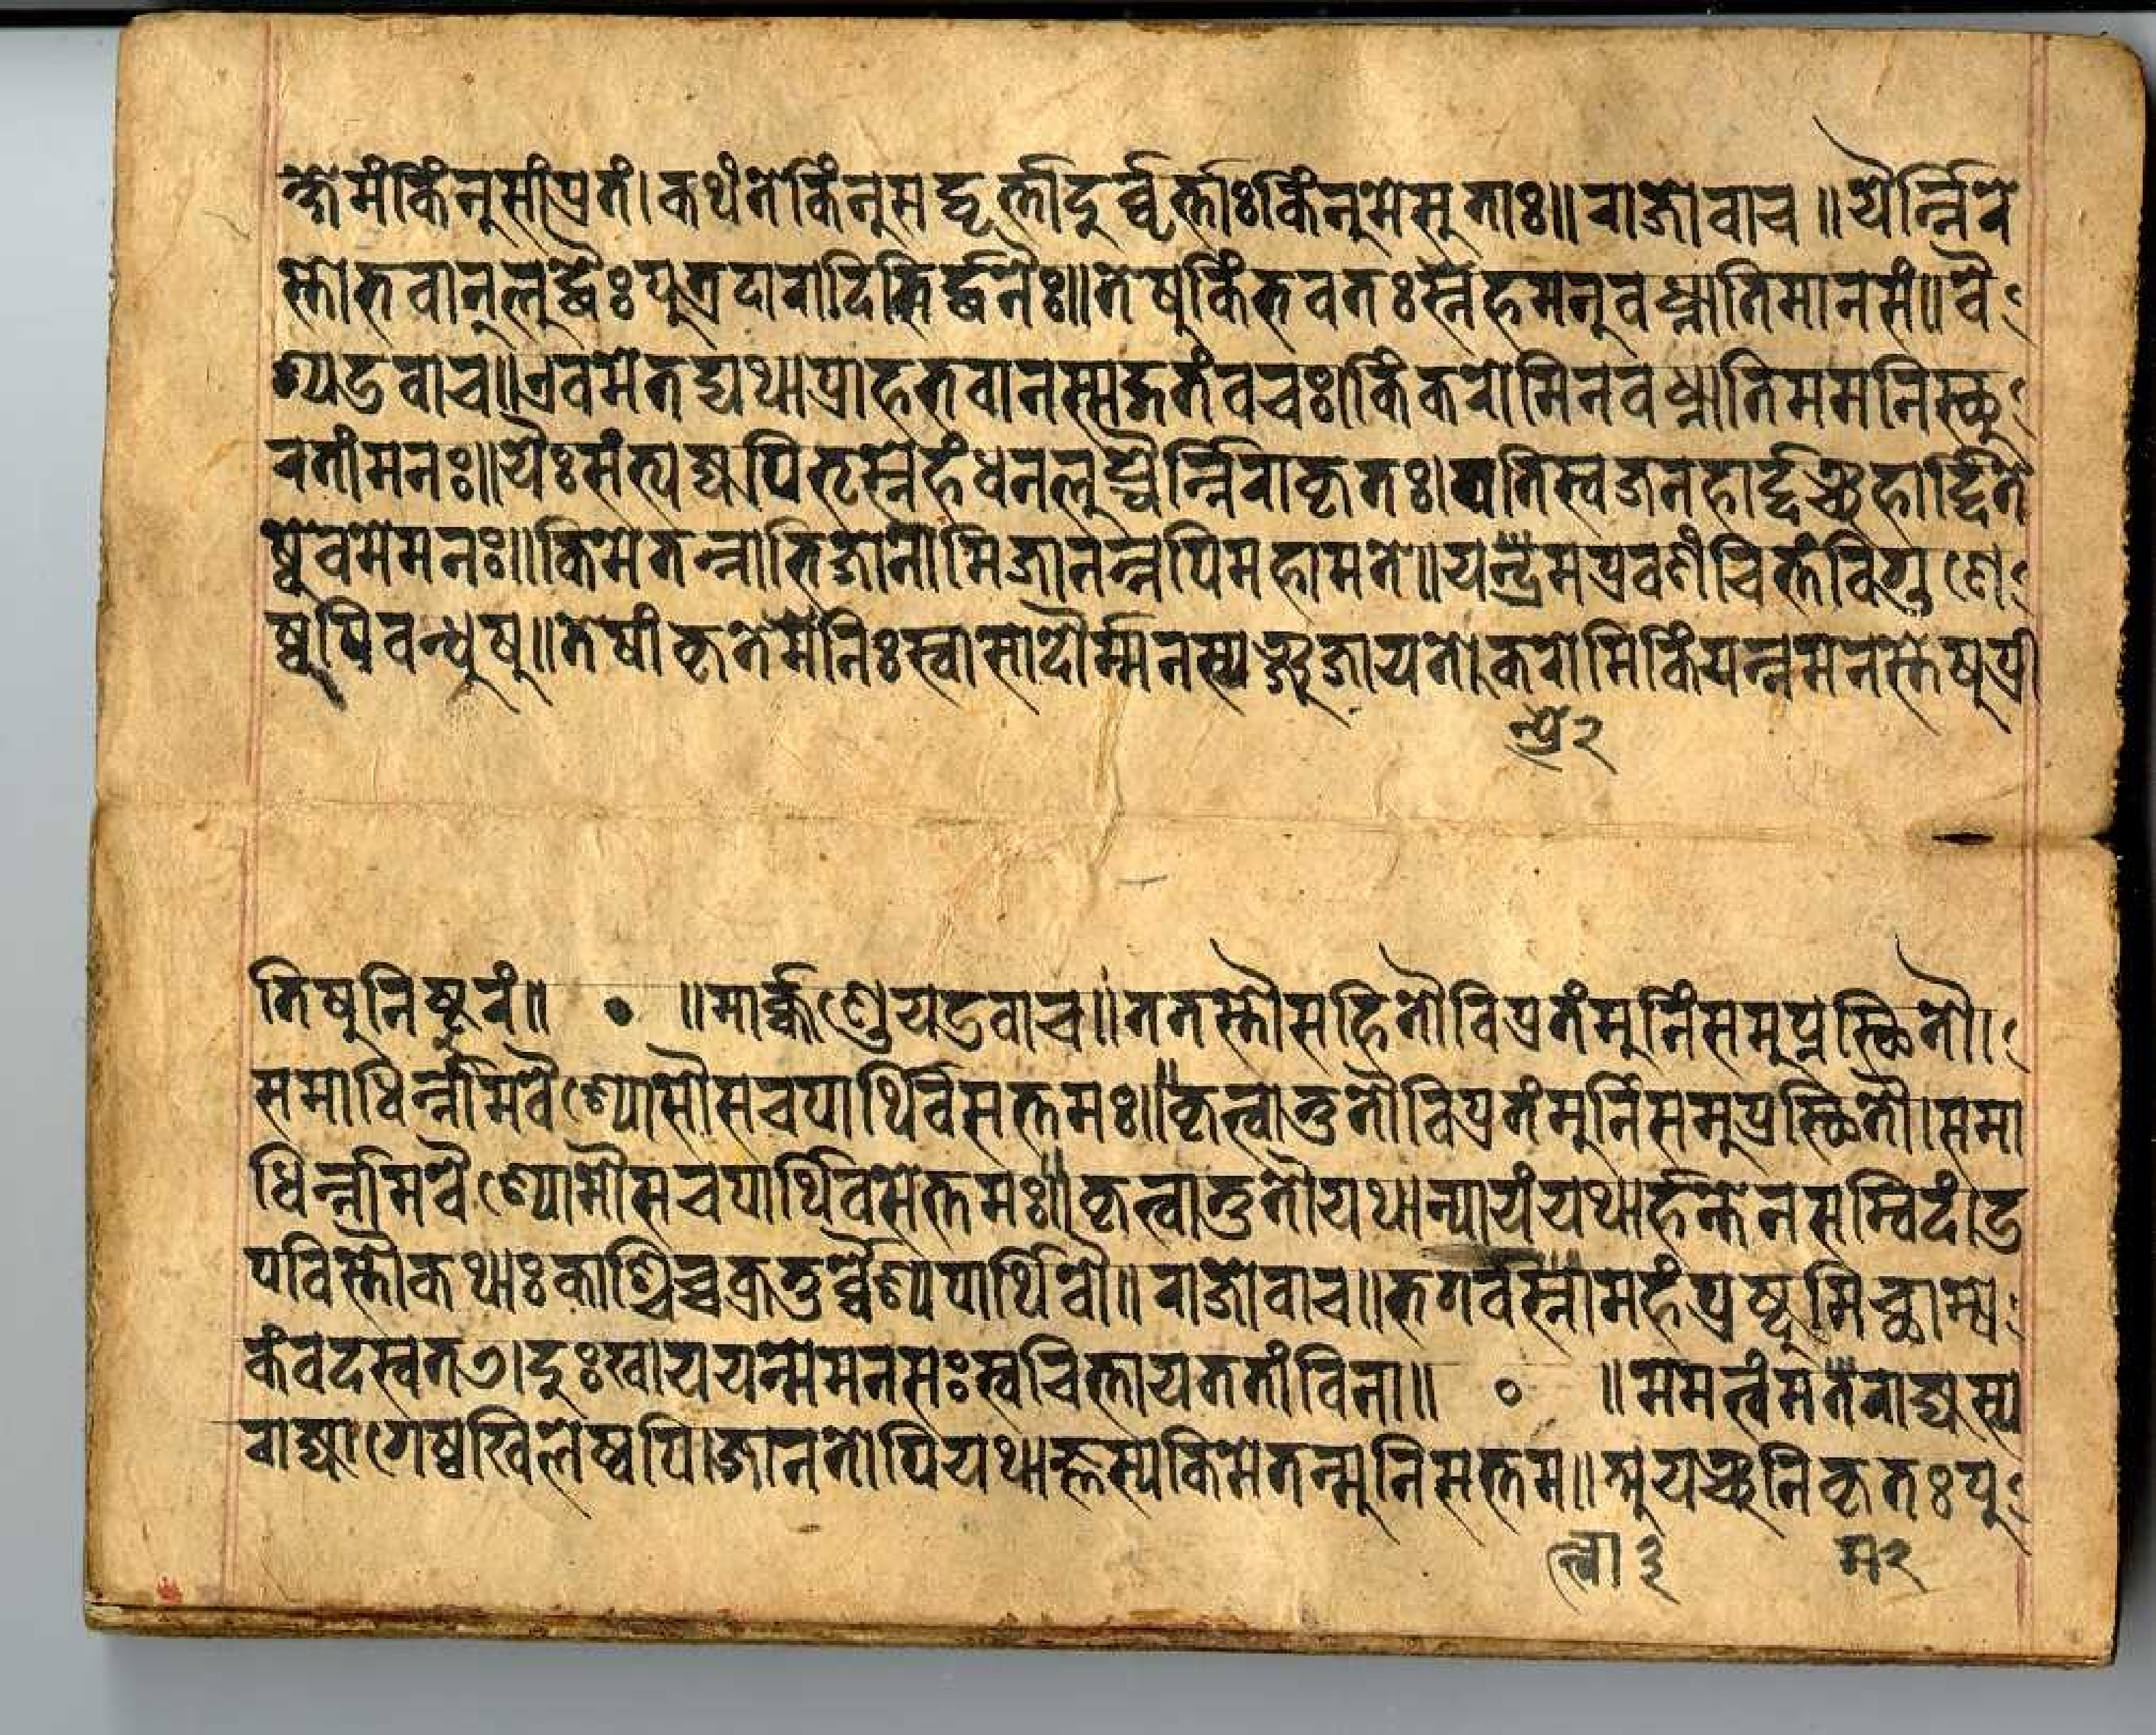 क्षेमंकिंनुसांप्रतं।कथंतेकिंनुसद्वृर्त्तादुर्व्वृर्त्ताःकिंनुमेसुताः॥राजोवाच॥यैर्न्निरे
स्तोभवान्लुद्धैःपुत्रदारादिभिर्द्धनैः॥तेषुकिंभवतःस्नेहमनुवध्नातिमानसं॥वै
श्यउवाच॥एवमेतद्यथाप्राहभवानस्मद्गतंवचः।किंकरोमिनवध्नातिममनिस्छु
रतांमनः॥यैःसंत्यज्यपितृस्नेहंधनलुब्धैर्न्निराकृतः।पतिस्वजनहार्द्दञ्चहार्द्दिते
ष्वेवमेमनः॥किमेतन्नाभिजानामिजानन्नपिमहामते॥यन्द्रमप्रवणंचित्तंविगुणे
ष्वपिवन्धुषु॥तेषांकृतेमेनिःस्वासोदौर्म्मनस्यञ्चजायते।करोमिकिंयन्नमनस्तेषुप्री
न्प्रे२
तिषुनिष्ठुरं॥ ॰ ॥मार्क्कण्डेयउवाच॥ततस्तौसहितौविप्रतंमुनिंसमुपस्थितौ।
समाधिर्न्नामवैश्योसौसचपार्थिवसत्तमः॥कृत्वातुतौविप्रतंमुनिंसमुप्रस्थितौ।समा
धिर्न्नामवैश्योमौसचपार्थिवसेत्तमः॥कृत्वातुतौयथान्यायंयथार्हन्तेनसम्विदं।उ
पविस्तौकथाःकाश्चिच्चक्रतुर्व्वैश्यपार्थिवौ॥राजोवाच॥भगवंस्त्वामहंप्रष्टुमिच्छाम्ये
कंवदस्वतत्।दुःखाययन्मेमनसःस्वचित्तायततांविना॥ ॰ ॥ममत्वंमतराज्यस्य
राज्यागेष्वखिलेष्वपि।जानतोपियथाज्ञस्यकिमेतन्मुनिसत्तम॥अयञ्चनिकृतःपु
त्वा३ म२